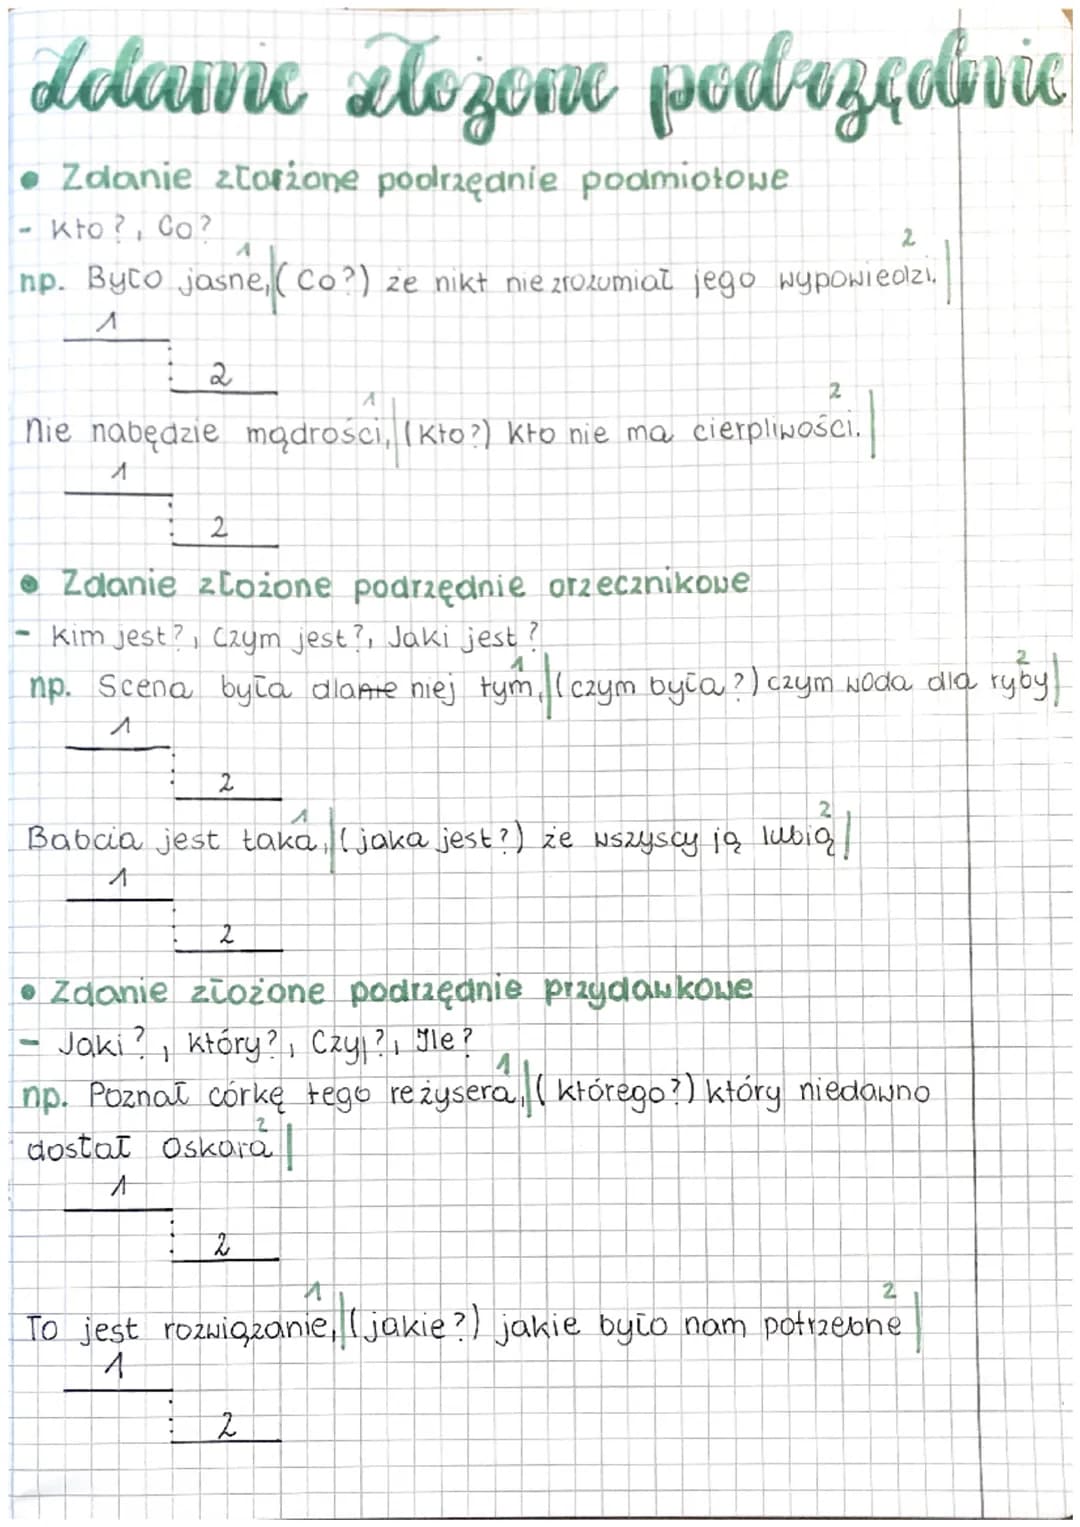 Zdanie złożone podrzędnie
• Zdanie złorżone podrzędnie podmiotowe
- Kto?, Co?
1 2
np. Było jasne,|(Co?) że nikt nie zrozumiał jego wypowiedzi.|
1
2
1 2
Nie nabędzie mądrości,|(Kto?) Kto nie ma cierpliwości.|
1
2
• Zdanie złożone podrzędnie orzecznikowe
- Kim jest?, Czym jest?, Jaki jest?
1 2
np. Scena była dla niej tym,|(czym była?) czym woda dla ryby|
1
2
1 2
Babcia jest taka,|(jaka jest?) że wszyscy ją lubią|
1
2
• Zdanie złożone podrzędnie przydawkowe
- Jaki?, Który?, Czyj?, Ile?
1
np. Poznał córkę tego reżysera,|(którego?) który niedawno
2
dostał Oskara|
1
2
1 2
To jest rozwiązanie,|(jakie?) jakie było nam potrzebne|
1
2